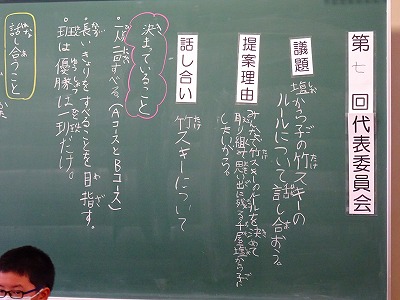 第七回代表委員会
議題
塩から子の竹スキーの
ルールについて話し合おう。
提案理由
みんなで竹スキーのルールを決めて
取り組み、思い出に残る
したいから。
話し合い
竹スキーについて
決まっていること
・一人一回すべる（AコースとBコース）
・長いきょりをすべることを目指す。
・班は優勝は一班だけ。
話し合うこと